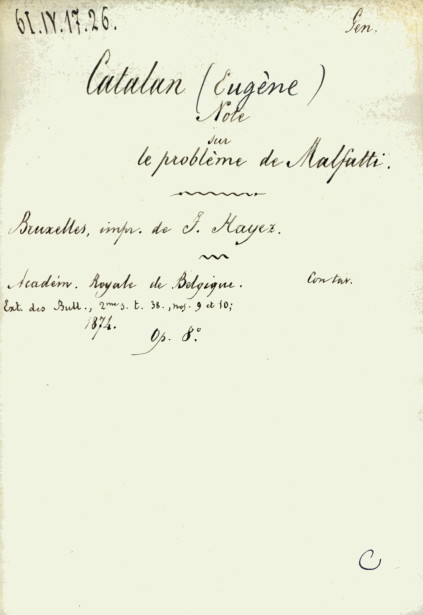 61.IV.17.26.
Gen.
Catalan (Eugène)
Note
sur
le problème de Malfatti.
Bruxelles, impr. de F. Hayez.
Académ. Royale de Belgique.
Ext. des Bull., 2me s. t. 38., nos. 9 et 10;
1874.
Op. 8.º
C